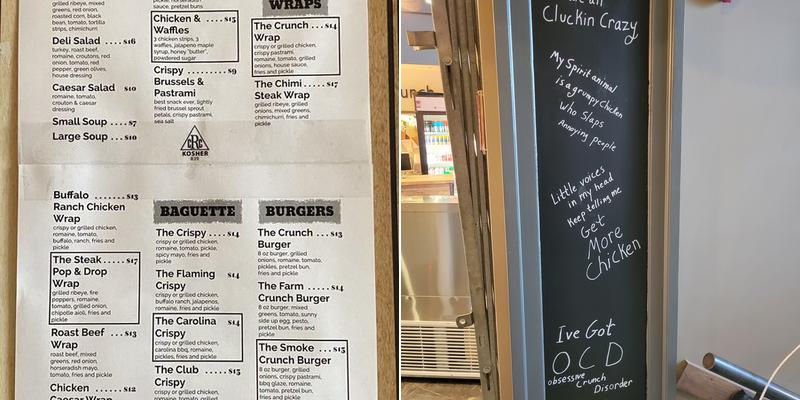 grilled ribeye, mixed
greens, red onions,
roasted corn, black
bean, tomato, tortilla
strips, chimichurri
Deli Salad ..... $16
turkey, roast beef,
romaine, croutons, red
onion, tomato, red
pepper, green olives,
house dressing
Caesar Salad $10
romaine, tomato,
crouton & caesar
dressing
Small Soup .... $7
Large Soup ... $10
sauce, pretzel buns
Chicken & ..... $15
Waffles
3 chicken strips, 3
waffles, jalapeno maple
syrup, honey "butter",
powdered sugar
Crispy ......... $9
Brussels &
Pastrami
best snack ever, lightly
fried brussel sprout
petals, crispy pastrami,
sea salt
CRC
KOSHER
WRAPS
The Crunch .. $14
Wrap
crispy or grilled chicken,
crispy pastrami,
romaine, tomato, grilled
onions, house sauce,
fries and pickle
The Chimi ..... $17
Steak Wrap
grilled ribeye, grilled
onions, mixed greens,
chimichurri, fries and
pickle
Buffalo ........ $13
Ranch Chicken
Wrap
crispy or grilled chicken,
romaine, tomato,
buffalo, ranch, fries and
pickle
The Steak ..... $17
Pop & Drop
Wrap
grilled ribeye, fire
poppers, romaine,
tomato, grilled onion,
chipotle aioli, fries and
pickle
Roast Beef ... $13
Wrap
roast beef, mixed
greens, red onion,
horseradish mayo,
tomato, fries and pickle
Chicken ....... $12
Caesar Wrap
BAGUETTE
The Crispy .... $14
crispy or grilled chicken,
romaine, tomato, pickle,
spicy mayo, fries and
pickle
The Flaming $14
Crispy
crispy or grilled chicken,
buffalo ranch, jalapenos,
romaine, tomato, fries
and pickle
The Carolina $14
Crispy
crispy or grilled chicken,
carolina bbq, romaine,
pickles, fries and pickle
The Club ...... $15
Crispy
crispy or grilled chicken,
romaine, tomato, grilled
BURGERS
The Crunch ... $13
Burger
8 oz burger, grilled
onions, romaine, tomato,
pickles, pretzel bun,
fries and pickle
The Farm ..... $14
Crunch Burger
8 oz burger, mixed
greens, tomato, sunny
side up egg, pesto,
pretzel bun, fries and
pickle
The Smoke ... $15
Crunch Burger
8 oz burger, grilled
onions, crispy pastrami,
bbq glaze, romaine,
tomato, pretzel bun,
fries and pickle
all
Cluckin Crazy
My Spirit animal
is a grumpy Chicken
Who Slaps
Annoying people
Little voices
in my head
Keep telling me
Get
More
Chicken
Ive Got
OCD
obsessive Crunch
Disorder